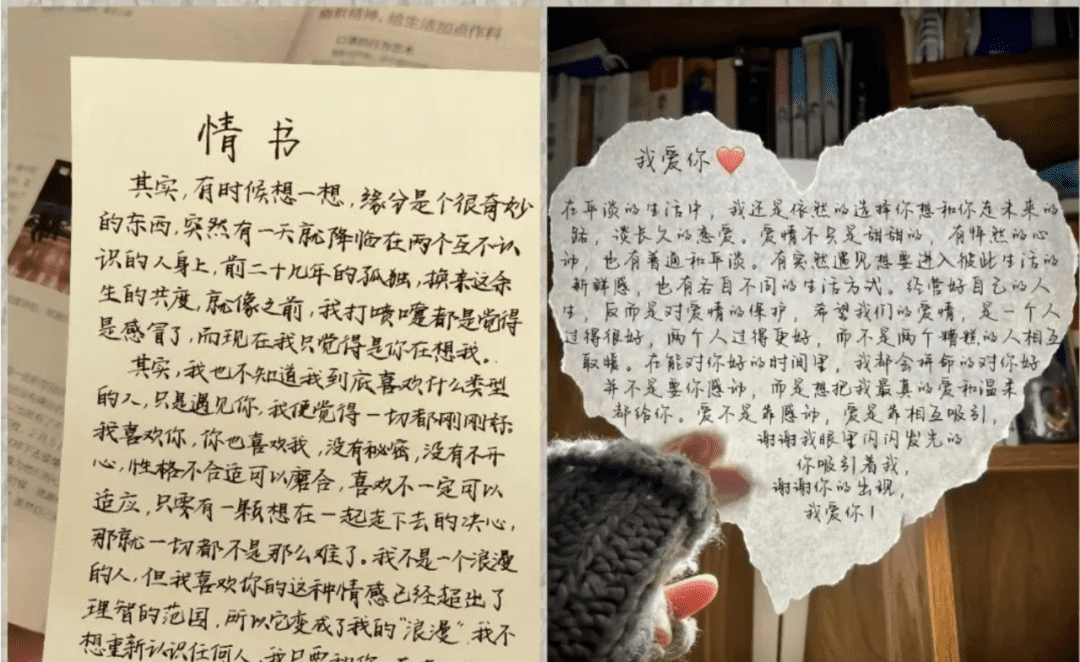 幽默精神，给生活加点作料
情书
其实，有时候想一想，缘分是个很奇妙
的东西，突然有一天就降临在两个互不认
识的人身上，前二十几年的孤独，换来这余
生的共度，就像之前，我打喷嚏都是觉得
是感冒了，而现在我只觉得是你在想我。
其实，我也不知道我到底喜欢什么类型
的人，只是遇见你，我便觉得一切都刚刚好
我喜欢你，你也喜欢我，没有秘密，没有不开
心，性格不合适可以磨合，喜欢不一定可以
适应，只要有一颗想在一起走下去的决心，
那就一切都不是那么难了。我不是一个浪漫
的人，但我喜欢你的这种情感已经超出了
理智的范围，所以它变成了我的“浪漫”我不
想重新认识任何人，我只要和你
我爱你❤️
在平淡的生活中，我还是依然的选择你想和你走未来的
路，谈长久的恋爱。爱情不只是甜甜的，有怦然的心
动，也有普通和平淡。有突然遇见想要进入彼此生活的
新鲜感，也有各自不同的生活方式。经营好自己的人
生，反而是对爱情的保护，希望我们的爱情，是一个人
过得很好，两个人过得更好，而不是两个糟糕的人相互
取暖。在能对你好的时间里，我都会拼命的对你好
并不是要你感动，而是想把我最真的爱和温柔
都给你。爱不是靠感动，爱是靠相互吸引，
谢谢我眼里闪闪发光的
你吸引着我，
谢谢你的出现，
我爱你！